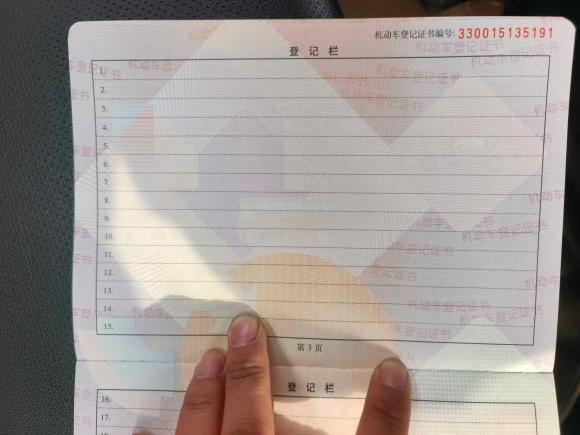 机动车登记证书编号: 330015135191
登记栏
1.
2.
3.
4.
5.
6.
7.
8.
9.
10.
11.
12.
13.
14.
15.
第3页
登记栏
16.
17.